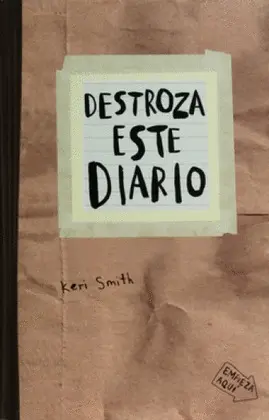 DESTROZA
ESTE
DIARIO
Keri Smith
EMPIEZA
AQUÍ